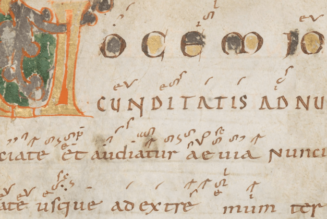 VOCEM IO
CUNDITATIS AD NU
ciate et audiatur aeuia Nunci
ate usque ad extre mum ter